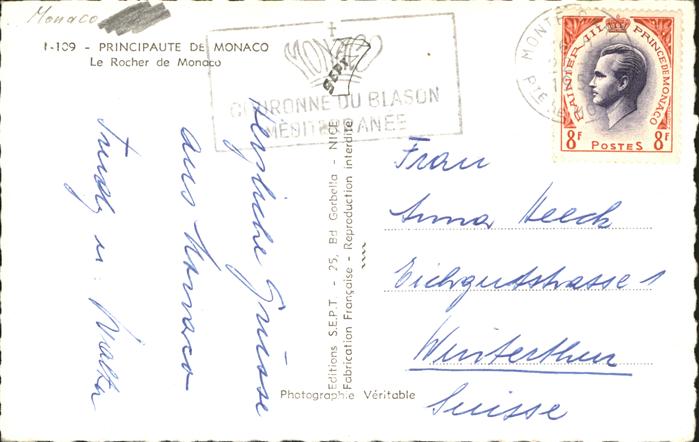 Monaco
1-109 - PRINCIPAUTE DE MONACO
Le Rocher de Monaco
MONACO
SEPT
COURONNE DU BLASON
MÉDITERRANÉE
MONTE
RAINIER III PRINCE DE MONACO
8F POSTES 8F
Herzliche Grüsse
aus Monaco
Trudy u. Walter
Editions S.E.P.T - 25, Bd Gorbella - NICE
Fabrication Française - Reproduction interdite
Photographie Véritable
Frau
Anna Heeck
Eichgutstrasse 1
Winterthur
Suisse